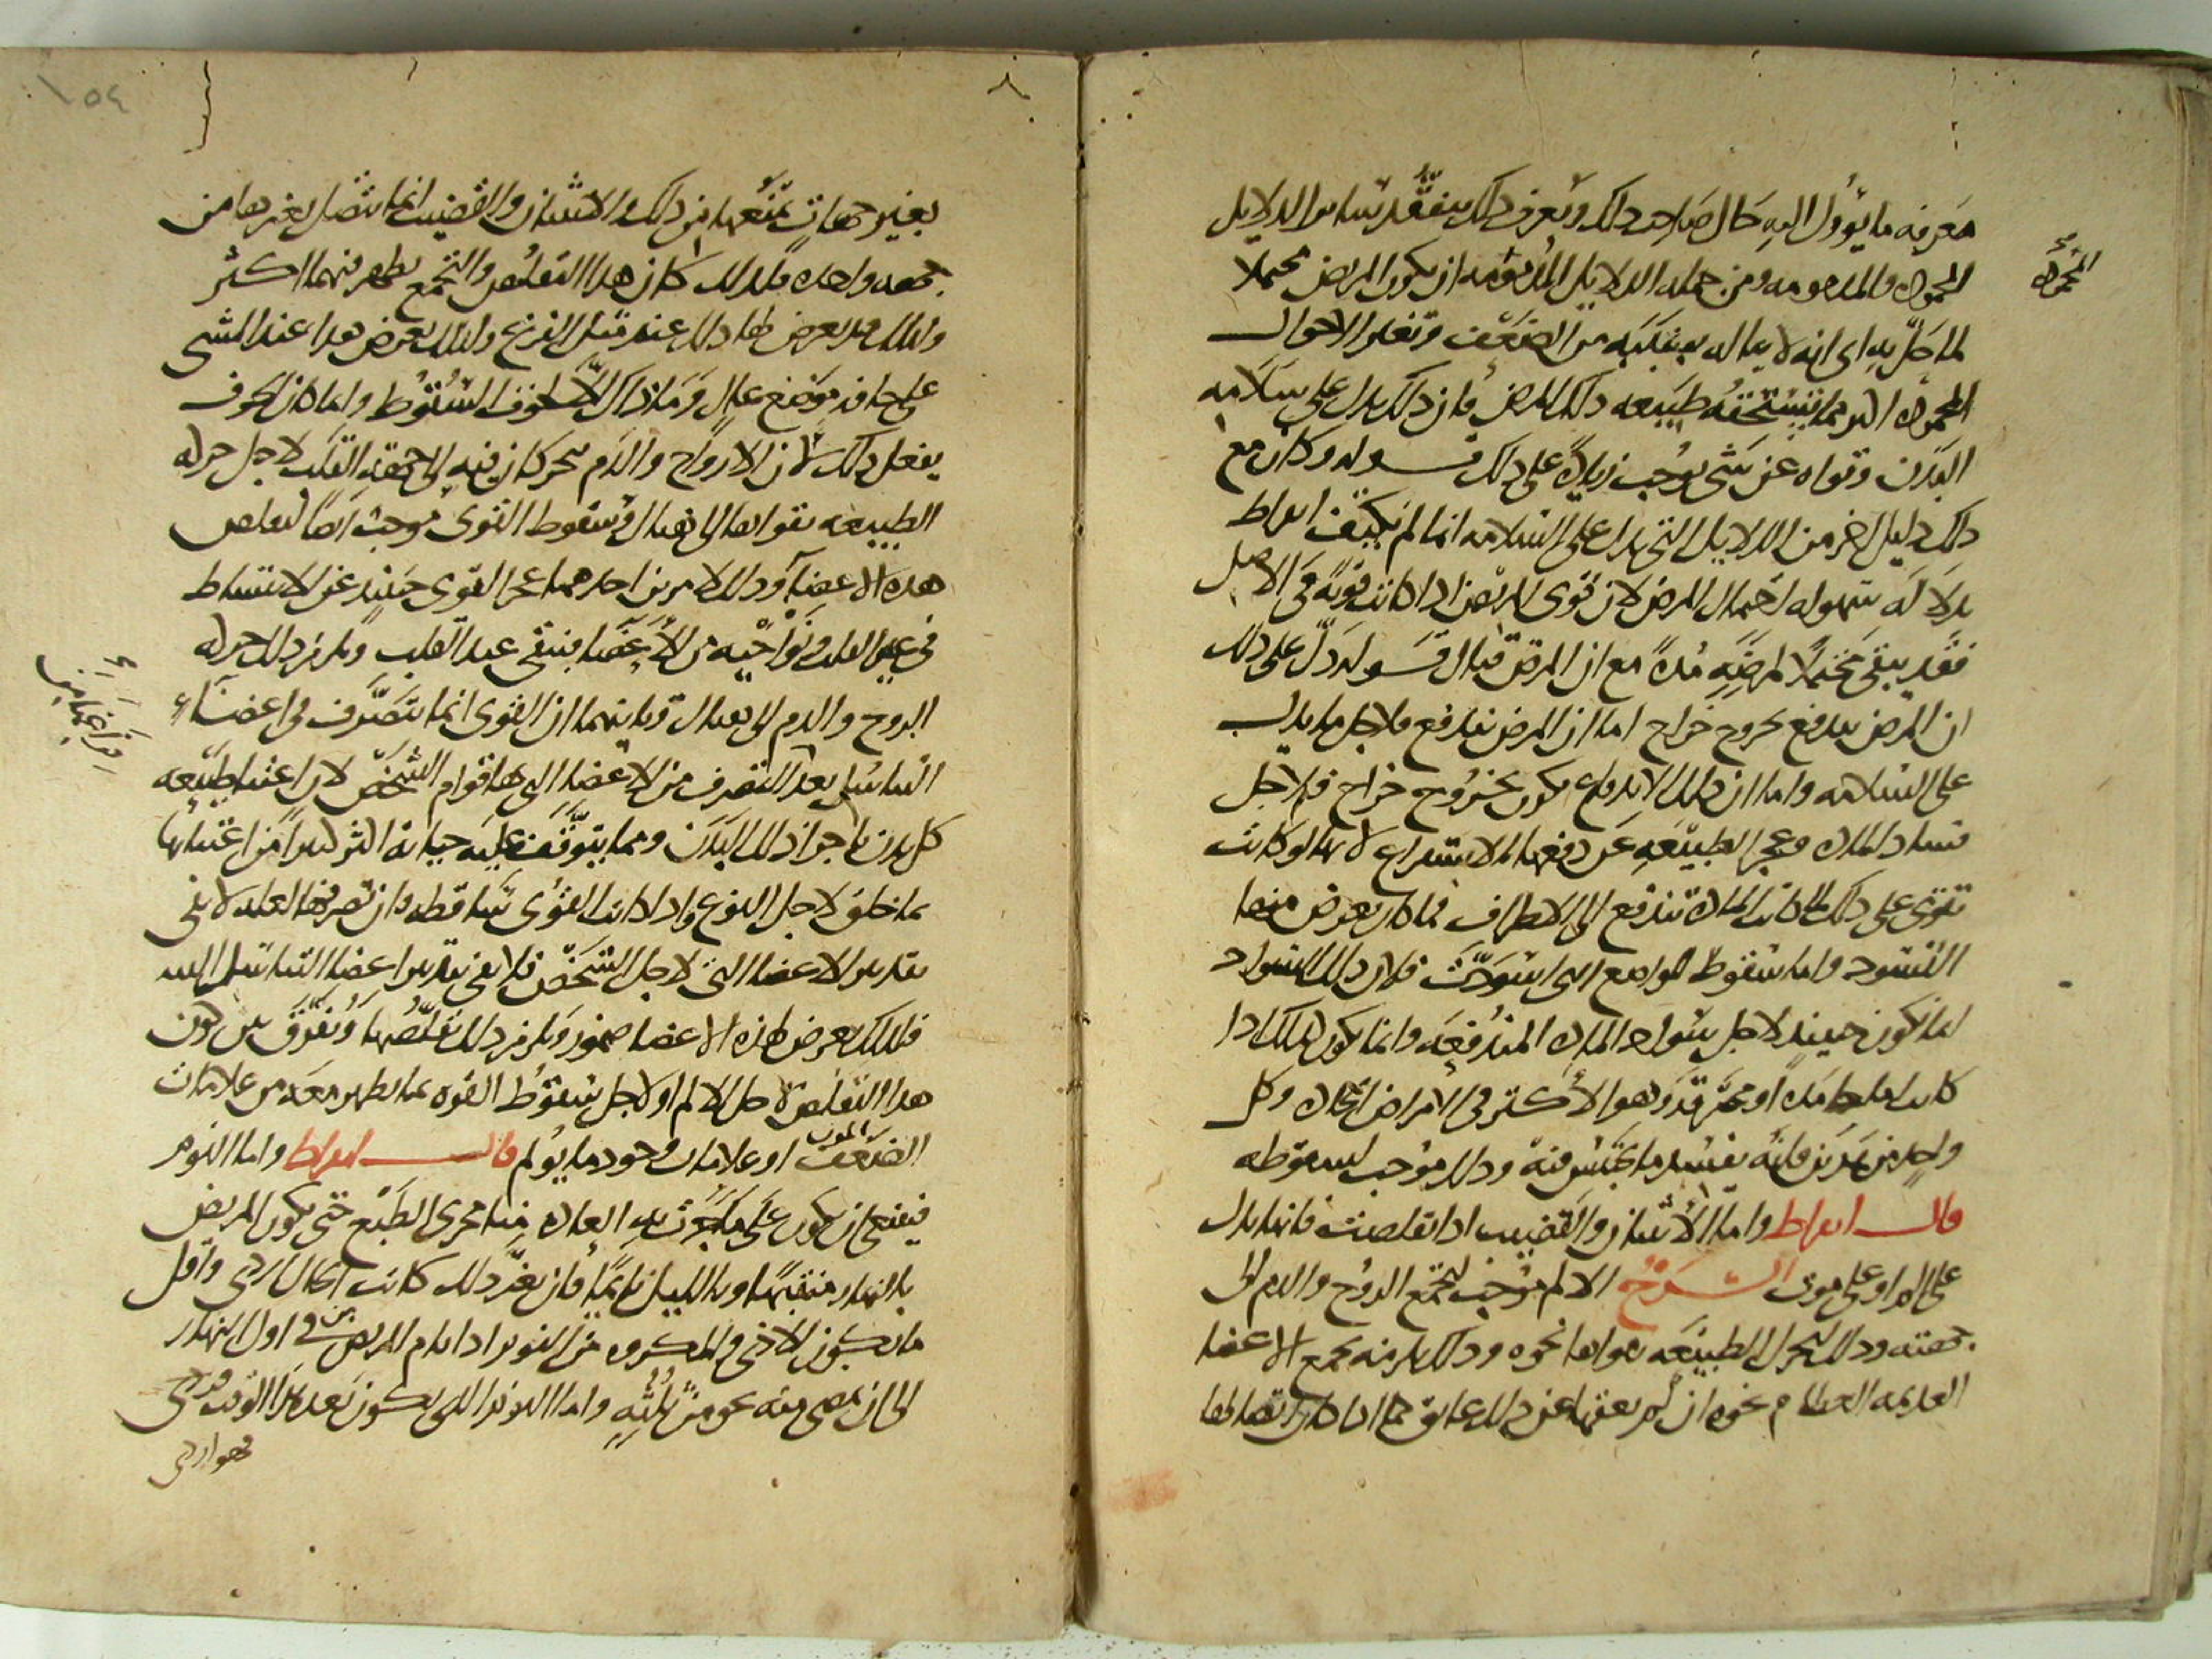 معرفه ما يؤول اليه حال صاحب ذلك وتعرف ذلك بتفقد سائر الدلايل
المحموده والمذمومه ومن جمله الدلايل المحموده ان يكون المريض محتملا
المحموده
لما حل به اى انه لا يناله بسببه من الضعف وتغير الاحوال
المحموده اكثر مما تستحقه طبيعه ذلك المرض فان ذلك يدل على سلامه
البدن وقواه عن شى يوجب زياده على ذلك قـــوله وكان مع
ذلك دليل اخر من الدلايل التى تدل على السلامه انما لم يكتف ابقراط
بدلاله سهوله احتمال المرض لان قوى المريض اذا كانت قويه فى الاصل
فقد يبقى محتملا لمرضه مده مع ان المرض قتال قـــوله دل على ذلك
ان المرض يندفع بخروج خراج اما ان المرض يندفع فلاجل ما يدل
على السلامه واما ان ذلك الاندفاع يكون بخروج خراج فلاجل
فساد الماده وعجز الطبيعه عن دفعها بالاستفراغ لانها لو كانت
تقوى على ذلك لما كانت الماده تندفع الى الاطراف فما كان يعرض منها
التسود واما سقوط المواضع التى اسودت فلان ذلك السواد
انما يكون حينيذ لاجل سواد الماده المندفعه وانما يكون كذلك اذا
كانت اما جامده او محترقه وهو الاكثر فى الامراض الحاده وكل
واحد من هذين فانه يفسد ما يحتبس فيه وذلك موجب لسقوطه
قال ابقراط واما الانثيان والقضيب اذا تقلصت فانها تدل
على الم او على موت الشـــرح الالم موجب لتجمع الروح والدم الى
جهته وذلك لتحرك الطبيعه بقواها نحوه وذلك يلزمه تجمع الاعضا
العديمه العظام نحوه ان لم يعقها عن ذلك عايق كما اذا كان اتصالها
بغير جهات تمنعها من ذلك والانثيان والقضيب انما تتصل بغيرها من
جهه واحده فلذلك كان هذا التقلص والتجمع يظهر فيهما اكثر
ولذلك قد يعرض لها ذلك عند قتل الفزع ولذلك يعرض هذا عند المشى
على حافه موضع عال وما ذاك الا لخوف السقوط وانما كان الخوف
يفعل ذلك لان الارواح والدم يتحركان فيه الى جهه القلب لاجل حركه
الطبيعه بقواها الى هناك وسقوط القوى موجب ايضا لتقلص
هذه الاعضاء وذلك لامرين احدهما عجز القوى حينيذ عن الانبساط
فى غير القلب ونواحيه من الاعضا فتبقى عند القلب ويلزم ذلك حركه
الروح والدم الى هناك وثانيهما ان القوى انما تتصرف فى اعضاء
التناسل بعد التصرف من الاعضا التى بها قوام الشخص لان اعتنا طبيعه
من اعتنايها
كل بدن باجزاء ذلك البدن ومما يتوقف عليه حياته اكثر كثيرا من اعتنايها
بما خلق لاجل النوع واذا كانت القوى ساقطه فان تصرفها العله لا يفى
بتدبير الاعضا التى لاجل الشخص فلا يفى بتدبير اعضا التناسل البته
فلذلك يعرض لهذه الاعضا ضمور ويلزم ذلك تقلصها ونفرق بين كون
هذا التقلص لاجل الالم او لاجل سقوط القوه بما يظهر معه من علامات
الضعف الموت او علامات وجود ما يؤلم قالـــ ابقراط واما النوم
فينبغى ان يكون على ما جرت به العاده منا مجرى الطبع حتى يكون المريض
بالنهار منتبها وبالليل نايما فان تغير ذلك كانت الحال اردى واقل
ما يكون الاذى والمكروه من النوم اذا نام المريض من فى اول النهار
الى ان يمضى منه نحو من ثلثه واما النوم الذى يكون بعد هذا الوقت فردى
فهو اردى
١٥٤